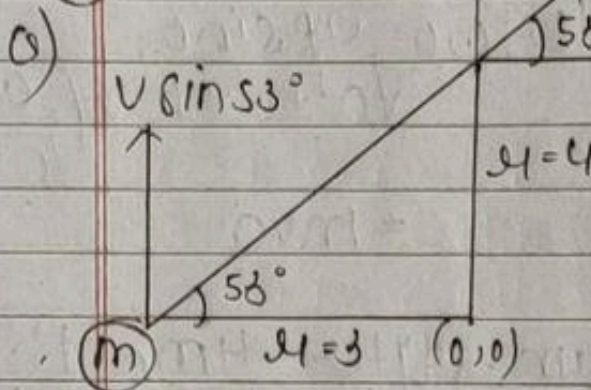 Q)
V sin 53°
53
r = 4
53°
m r = 3 (0,0)